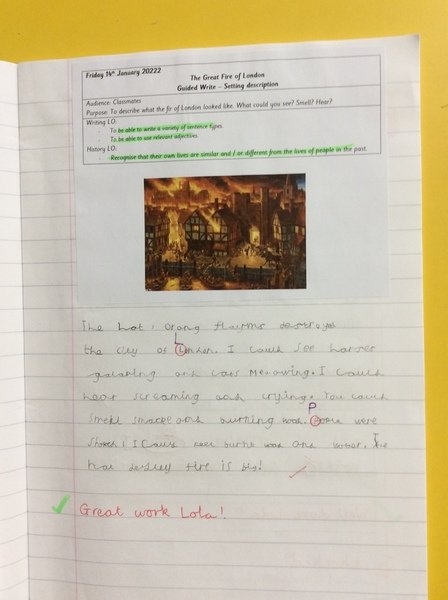 Friday 14th January 20222
The Great Fire of London
Guided Write – Setting description
Audience: Classmates
Purpose: To describe what the fir of London looked like. What could you see? Smell? Hear?
Writing LO:
- To be able to write a variety of sentence types.
- To be able to use relevant adjectives.
History LO:
- Recognise that their own lives are similar and / or different from the lives of people in the past.
The hot, orang flairms destroyd
the city of London. I could see horses
galoping and cats meowing. I could
hear screaming and crying. You could
smell smoke and burning wood. P
were
I could burnt wood and
hot fire is big!
Great work Lola!